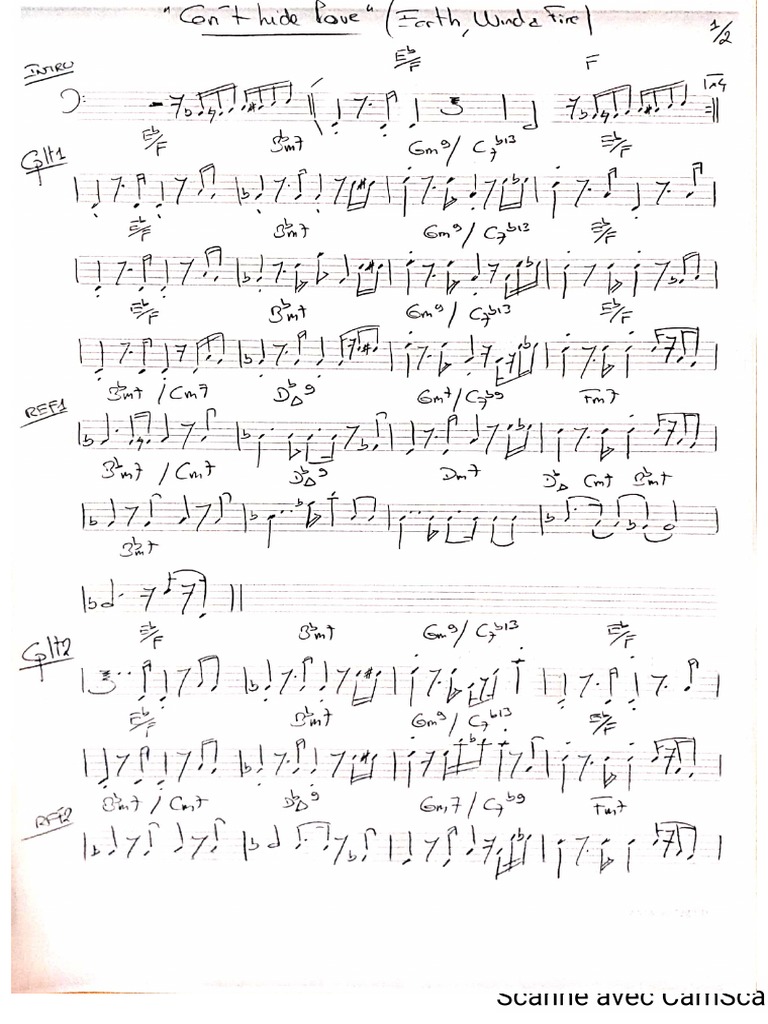 "Can't hide love" (Earth, Wind & Fire) 1/2
INTRO Eb/F F 1x4
Cplt1 Eb/F Bbm7 Gm9 / C7b13 Eb/F
Eb/F Bbm7 Gm9 / C7b13 Eb/F
Eb/F Bbm7 Gm9 / C7b13 Eb/F
REF1 Bbm7 / Cm7 DbΔ9 Gm7 / C7b9 Fm7
Bbm7 / Cm7 DbΔ9 Dm7 DbΔ Cm7 Bbm7
Bbm7
Cplt2 Eb/F Bbm7 Gm9 / C7b13 Eb/F
Eb/F Bbm7 Gm9 / C7b13 Eb/F
REF2 Bbm7 / Cm7 DbΔ9 Gm7 / C7b9 Fm7
Scanné avec CamSca